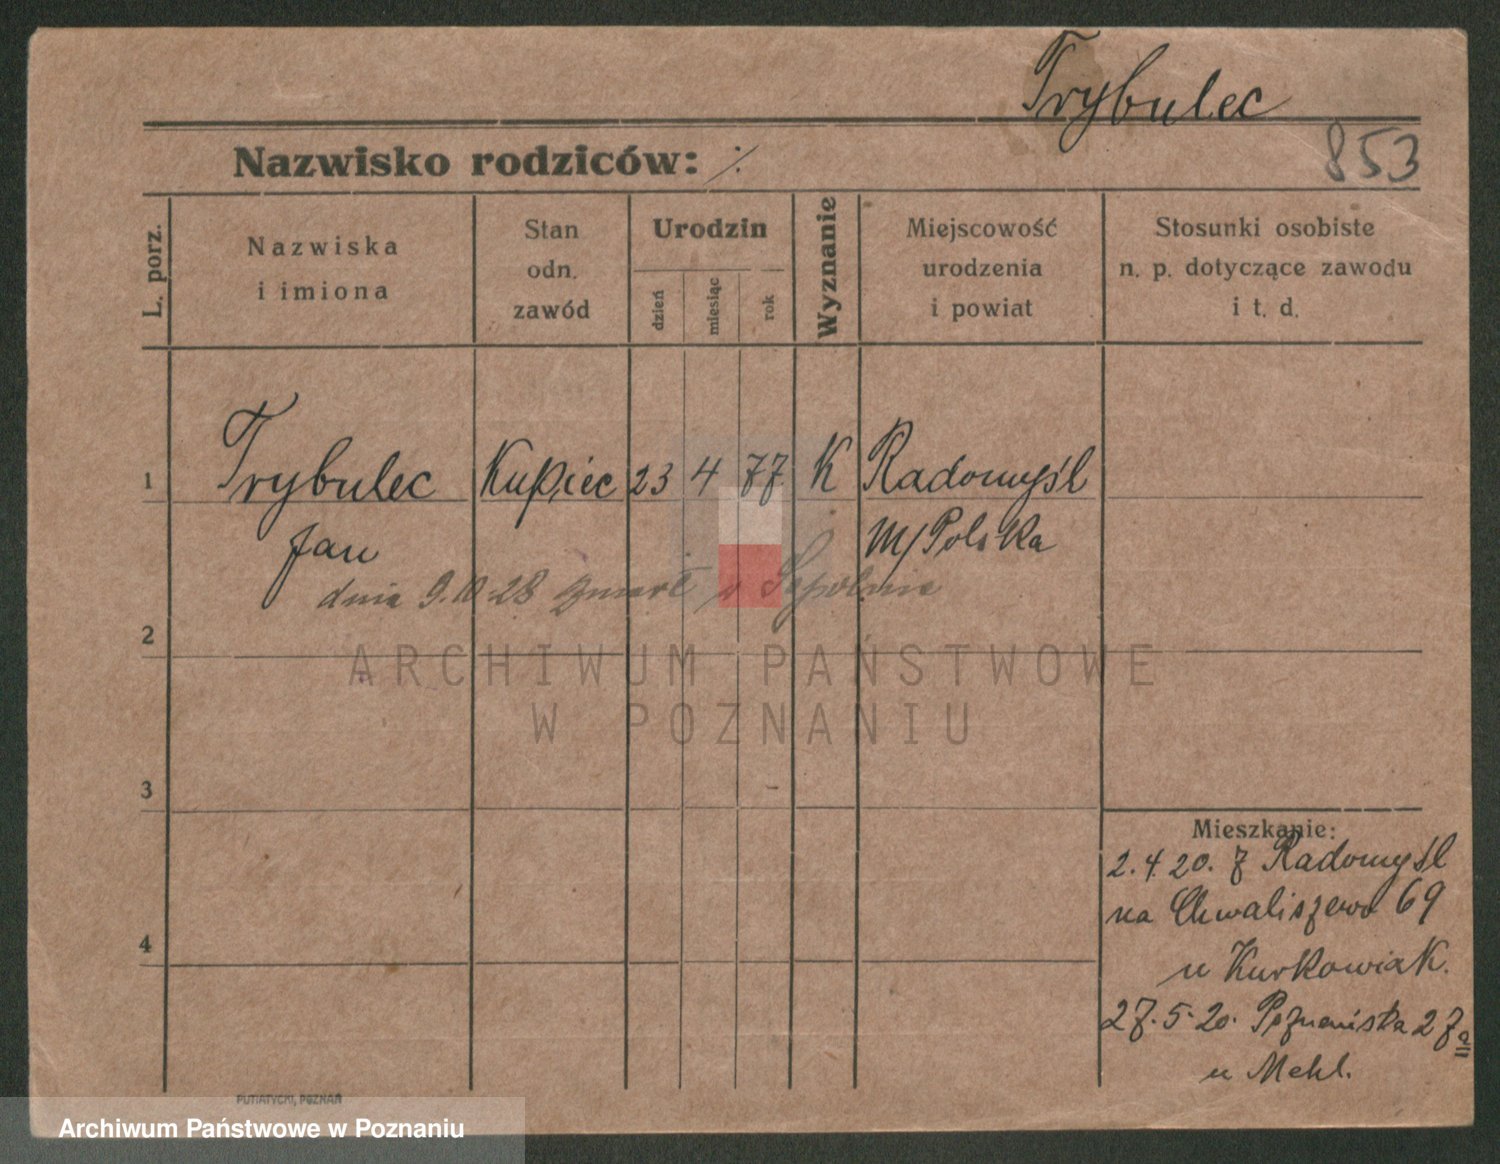 Trybulec
853
Nazwisko rodziców: ⁒
L. porz.
Nazwiska
i imiona
Stan
odn.
zawód
Urodzin
dzień
miesiąc
rok
Wyznanie
Miejscowość
urodzenia
i powiat
Stosunki osobiste
n. p. dotyczące zawodu
i t. d.
1 Trybulec Kupiec 23 4 77 K Radomyśl
Jan M/Polska
dnia 9.10.28 zmarł w Sępolnie
2
ARCHIWUM PAŃSTWOWE
W POZNANIU
3
Mieszkanie:
2.4.20. z Radomyśl
na Chwaliszewo 69
4
u Kurkowiak.
27.5.20. Poznańska 27a
u Mehl.
PUTIATYCKI, POZNAŃ
Archiwum Państwowe w Poznaniu